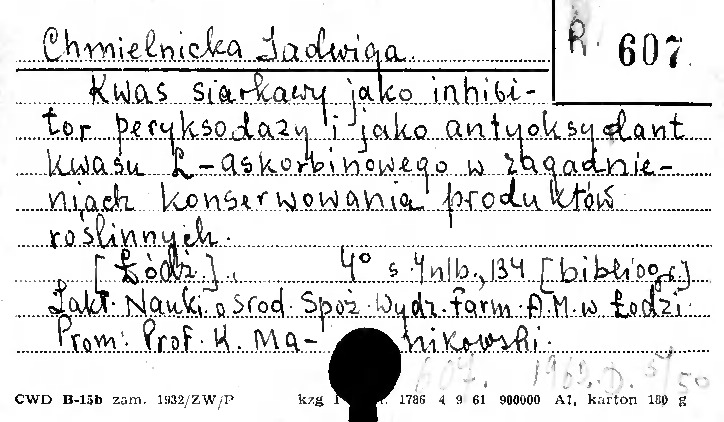 R. 607
Chmielnicka Jadwiga.
Kwas siarkawy jako inhibi-
tor peryksodazy i jako antyoksydant
kwasu L-askorbinowego w zagadnie-
niach konserwowania produktów
roślinnych.
[Łódź]. 4° s. 4nlb., 134 [bibliogr.]
Zakł. Nauki o środ. Spoż. Wydz. Farm. A.M. w Łodzi.
Prom: Prof. K. Ma- nikowski.
607. 1963.D. 5/50
CWD B-15b zam. 1932/ZW/P kzg 1786 4 9 61 900000 A7, karton 180 g